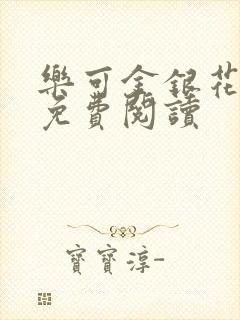 樂可金銀花
免費閱讀
寶寶淳-